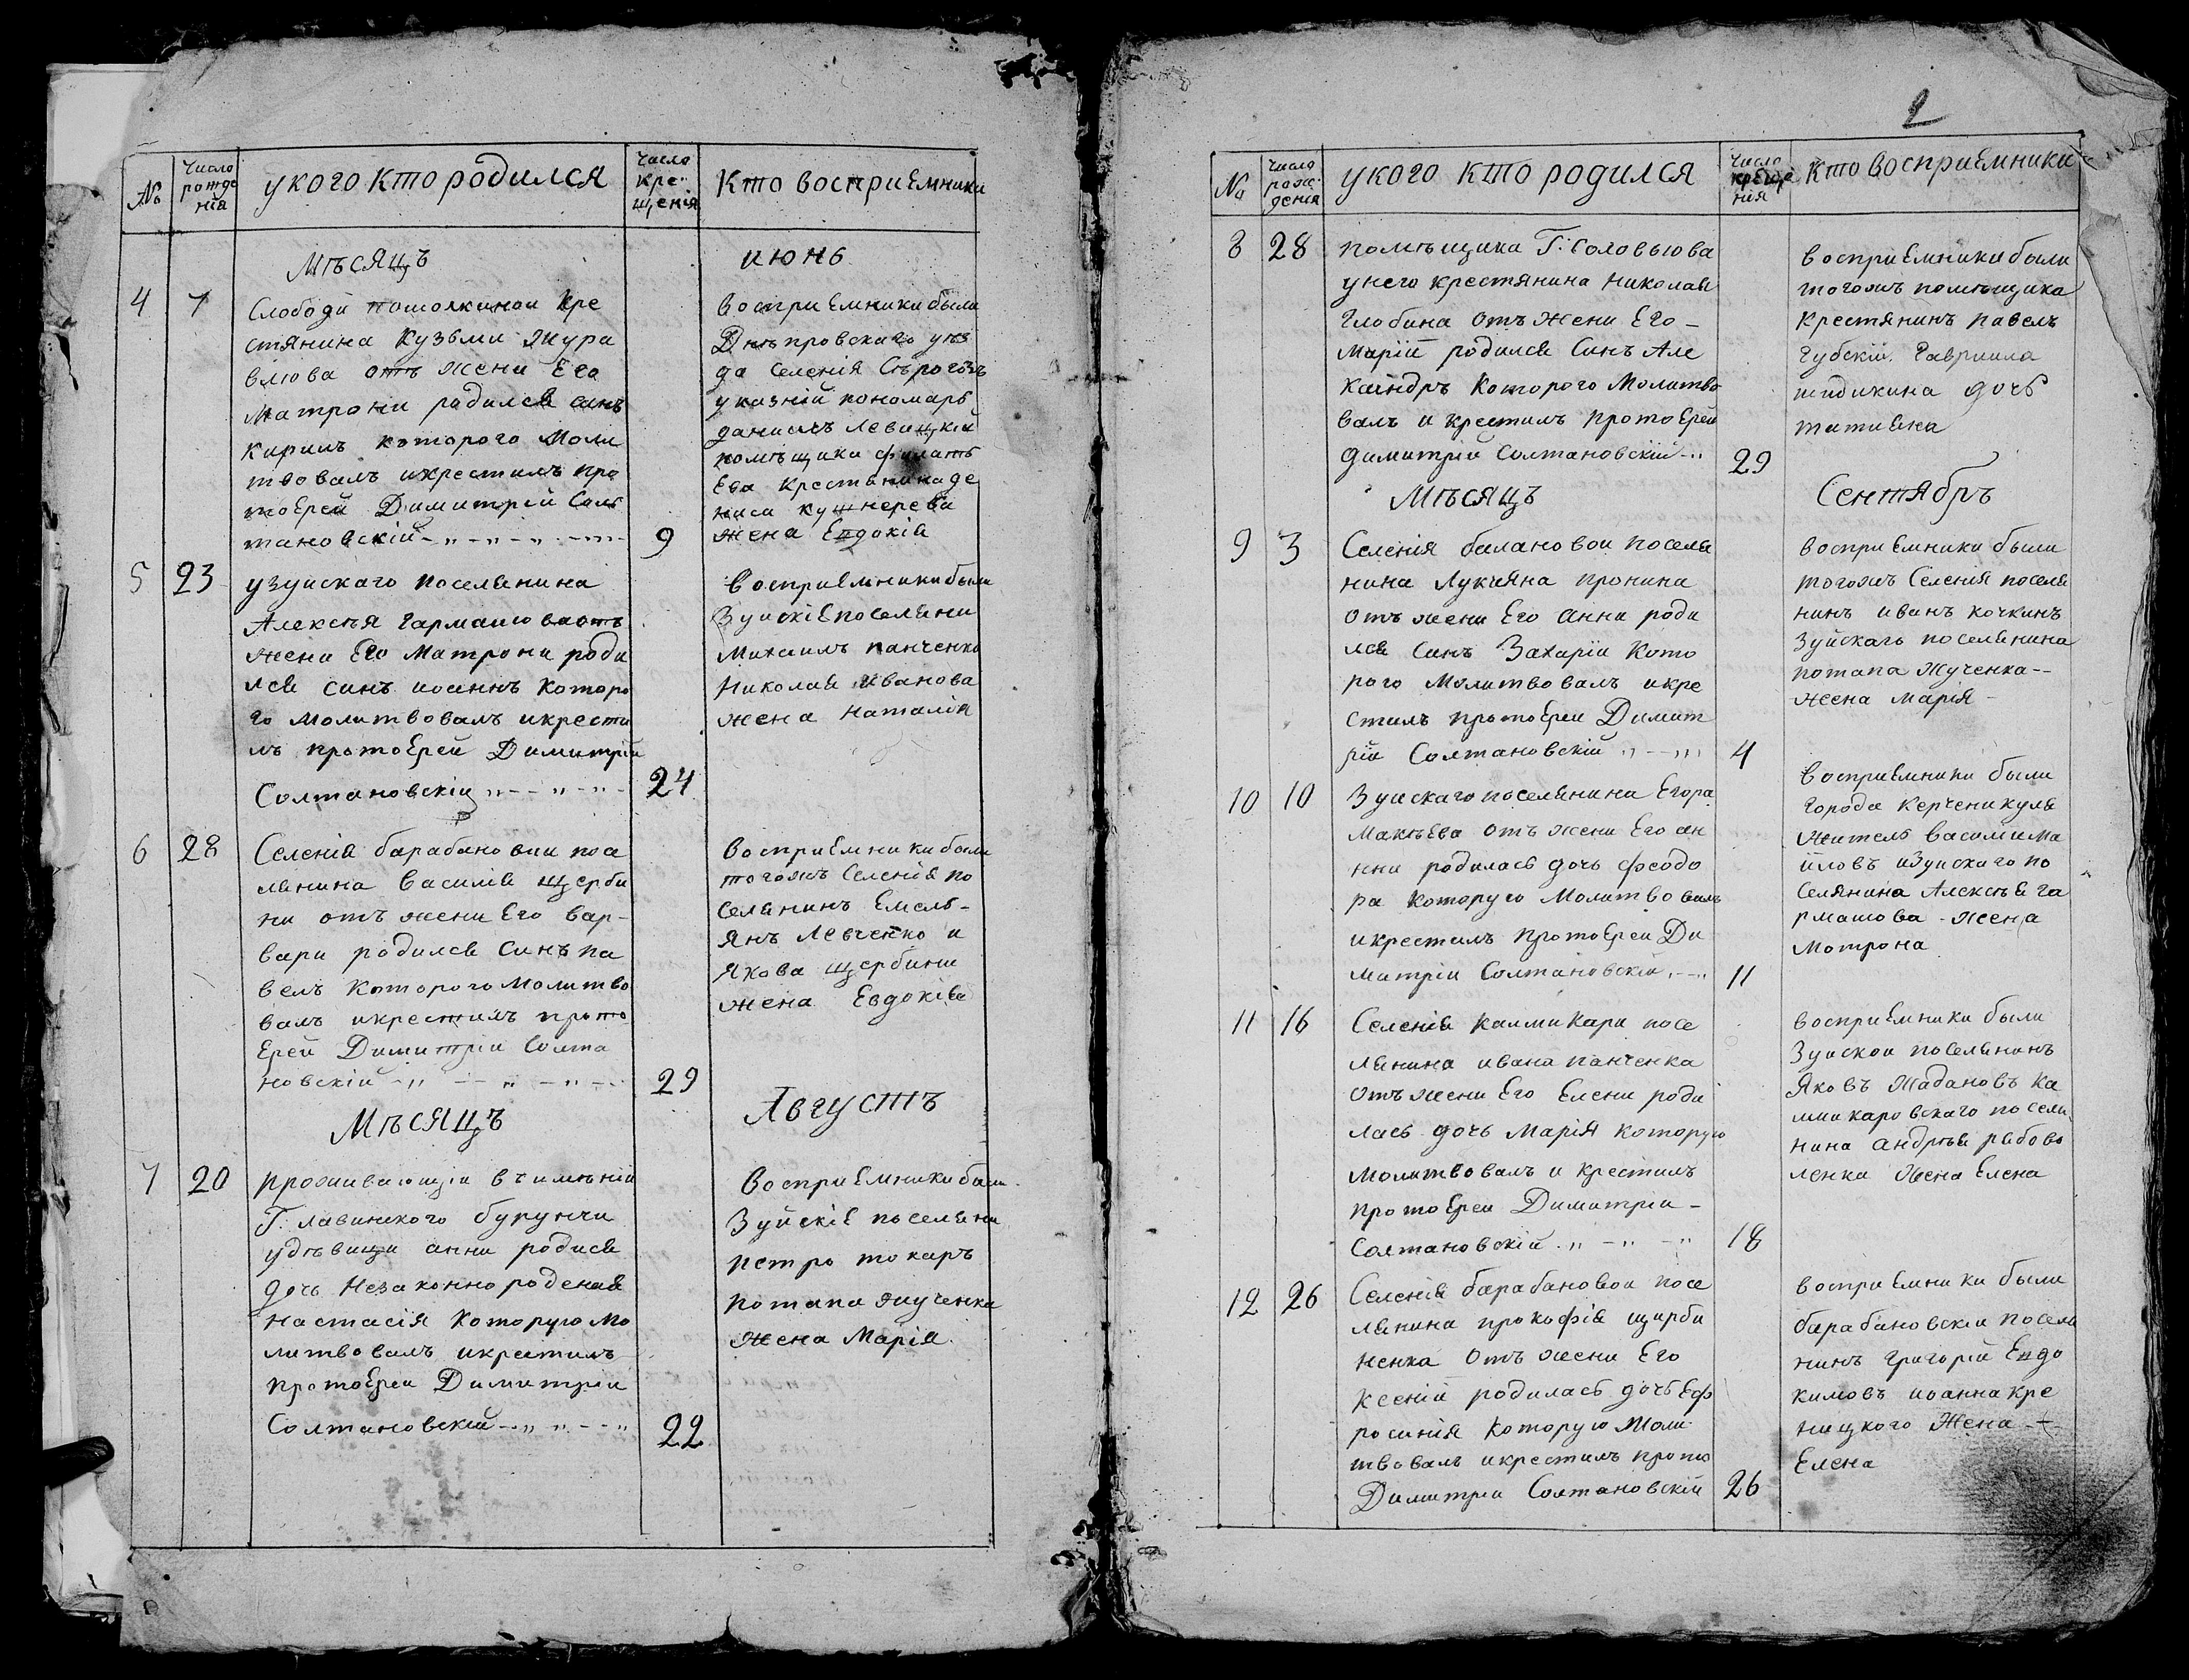 №
Число рожде нія
укого кто родился
Число кре= щенія
Кто восприемники
Мѣсяцъ
июнь
4
7
Слободи потомкиной кре
стянина Кузьми Жура
влюва отъ жени Его
Матрони родился синъ
Кирилъ которого Моли
твовалъ икрестилъ про
тоЕрей Димитрій Сол
тановскій
9
восприЕмники были
Днѣпровскаго уѣз
да Селенія Сѣрогозъ
указній пономарь
данилъ Левицкій
помѣщики филать
Ева крестянина де
ниса кушнерева
жена Евдокія
5
23
узуйскаго поселянина
Алексѣя Гармашо ваотъ
жени Его Матрони роди
лся синъ иоаннъ Которо
го молитвовалъ икрести
лъ протоЕрей Димитрій
Солтановскій
24
восприЕмники были
Зуйскіе поселяни
Михаилъ панченко
Николая иванова
жена Наталія
6
28
Селенія барабановки посе
лянина василія щерби
ни отъ жени Его вар-
вари родился синъ па
велъ Которого Молитво
валъ икрестилъ прото
Ерей Димитрій Солта
новскій
29
восприЕмники были
тогожъ Селенія по
селянинъ Емель-
янъ Левченко и
Якова щербини
жена Евдокія
Мѣсяцъ
Августъ
7
20
проживающія вимѣній
Г. лавинского бурунчи
удѣвици анни родися
дочь Незаконно роденая
Настасія Которую Мо
литвовалъ икрестилъ
протоЕрей Димитрій
Солтановскій
22
восприЕмники были
Зуйскіе поселяни
петро токаръ
потапа жученка
жена Марія
2
№
Число рож= денія
укого кто родился
Число креще нія
Кто восприемники
8
28
помѣщика Г: Соловьюва
унего крестянина Николая
Глобина отъ жени Его-
Маріи родился Синъ Але
Ксандръ Которого Молитво
валъ и крестилъ протоЕрей
димитрій Солтановскій
29
восприЕмники были
тогожъ помѣщика
крестянинъ павелъ
Губскій. Гавриила
дочь
татияна
Мѣсяцъ
Сентябръ
9
3
Селенія балановой поселя
нина Лукияна пронина
отъ жени Его анни роди
лся синъ Захарій Кото
рого Молитвовалъ икре
стилъ протоЕрей Димит
рій Солтановскій
4
восприЕмники были
тогожъ Селенія поселя
нинъ иванъ кочкинъ
Зуйскаго поселянина
потапа Жученка--
жена Марія-
10
10
Зуйскаго поселянина Егора
Макѣева отъ жени Его ан
нни родилась дочь феодо
ра Которую Молитвовалъ
икрестилъ протоЕрей Ди
митрій Солтановскій
11
восприЕмники были
города Керченикуля
житель василий ма
иловъ изуйскаго по
селянина Алексѣя Га
рмашова - жена
Мотрона
11
16
Селенія Калмикари посе
лянина ивана панченка
отъ жени Его Елени роди
лась дочь Марія Которую
молитвовалъ и крестилъ
протоЕрей Димитрій-
Солтановскій
18
восприЕмники были
Зуйской поселянинъ
Яковъ Жадановъ ка
лмикаровскаго поселя
нина андрѣя рибова
ленка жена Елена
12
26
Селенія барабановой посе
лянина прокофія щирби
ненка отъ жени Его
Ксеній родилась дочь Еф
росинія Которую Моли
твовалъ икрестилъ прото
Димитрій Солтановскій
26
восприЕмники были
барабановскій поселя
нинъ григорій Евдо
кимовъ иоанна кре
ницкого Жена
Елена